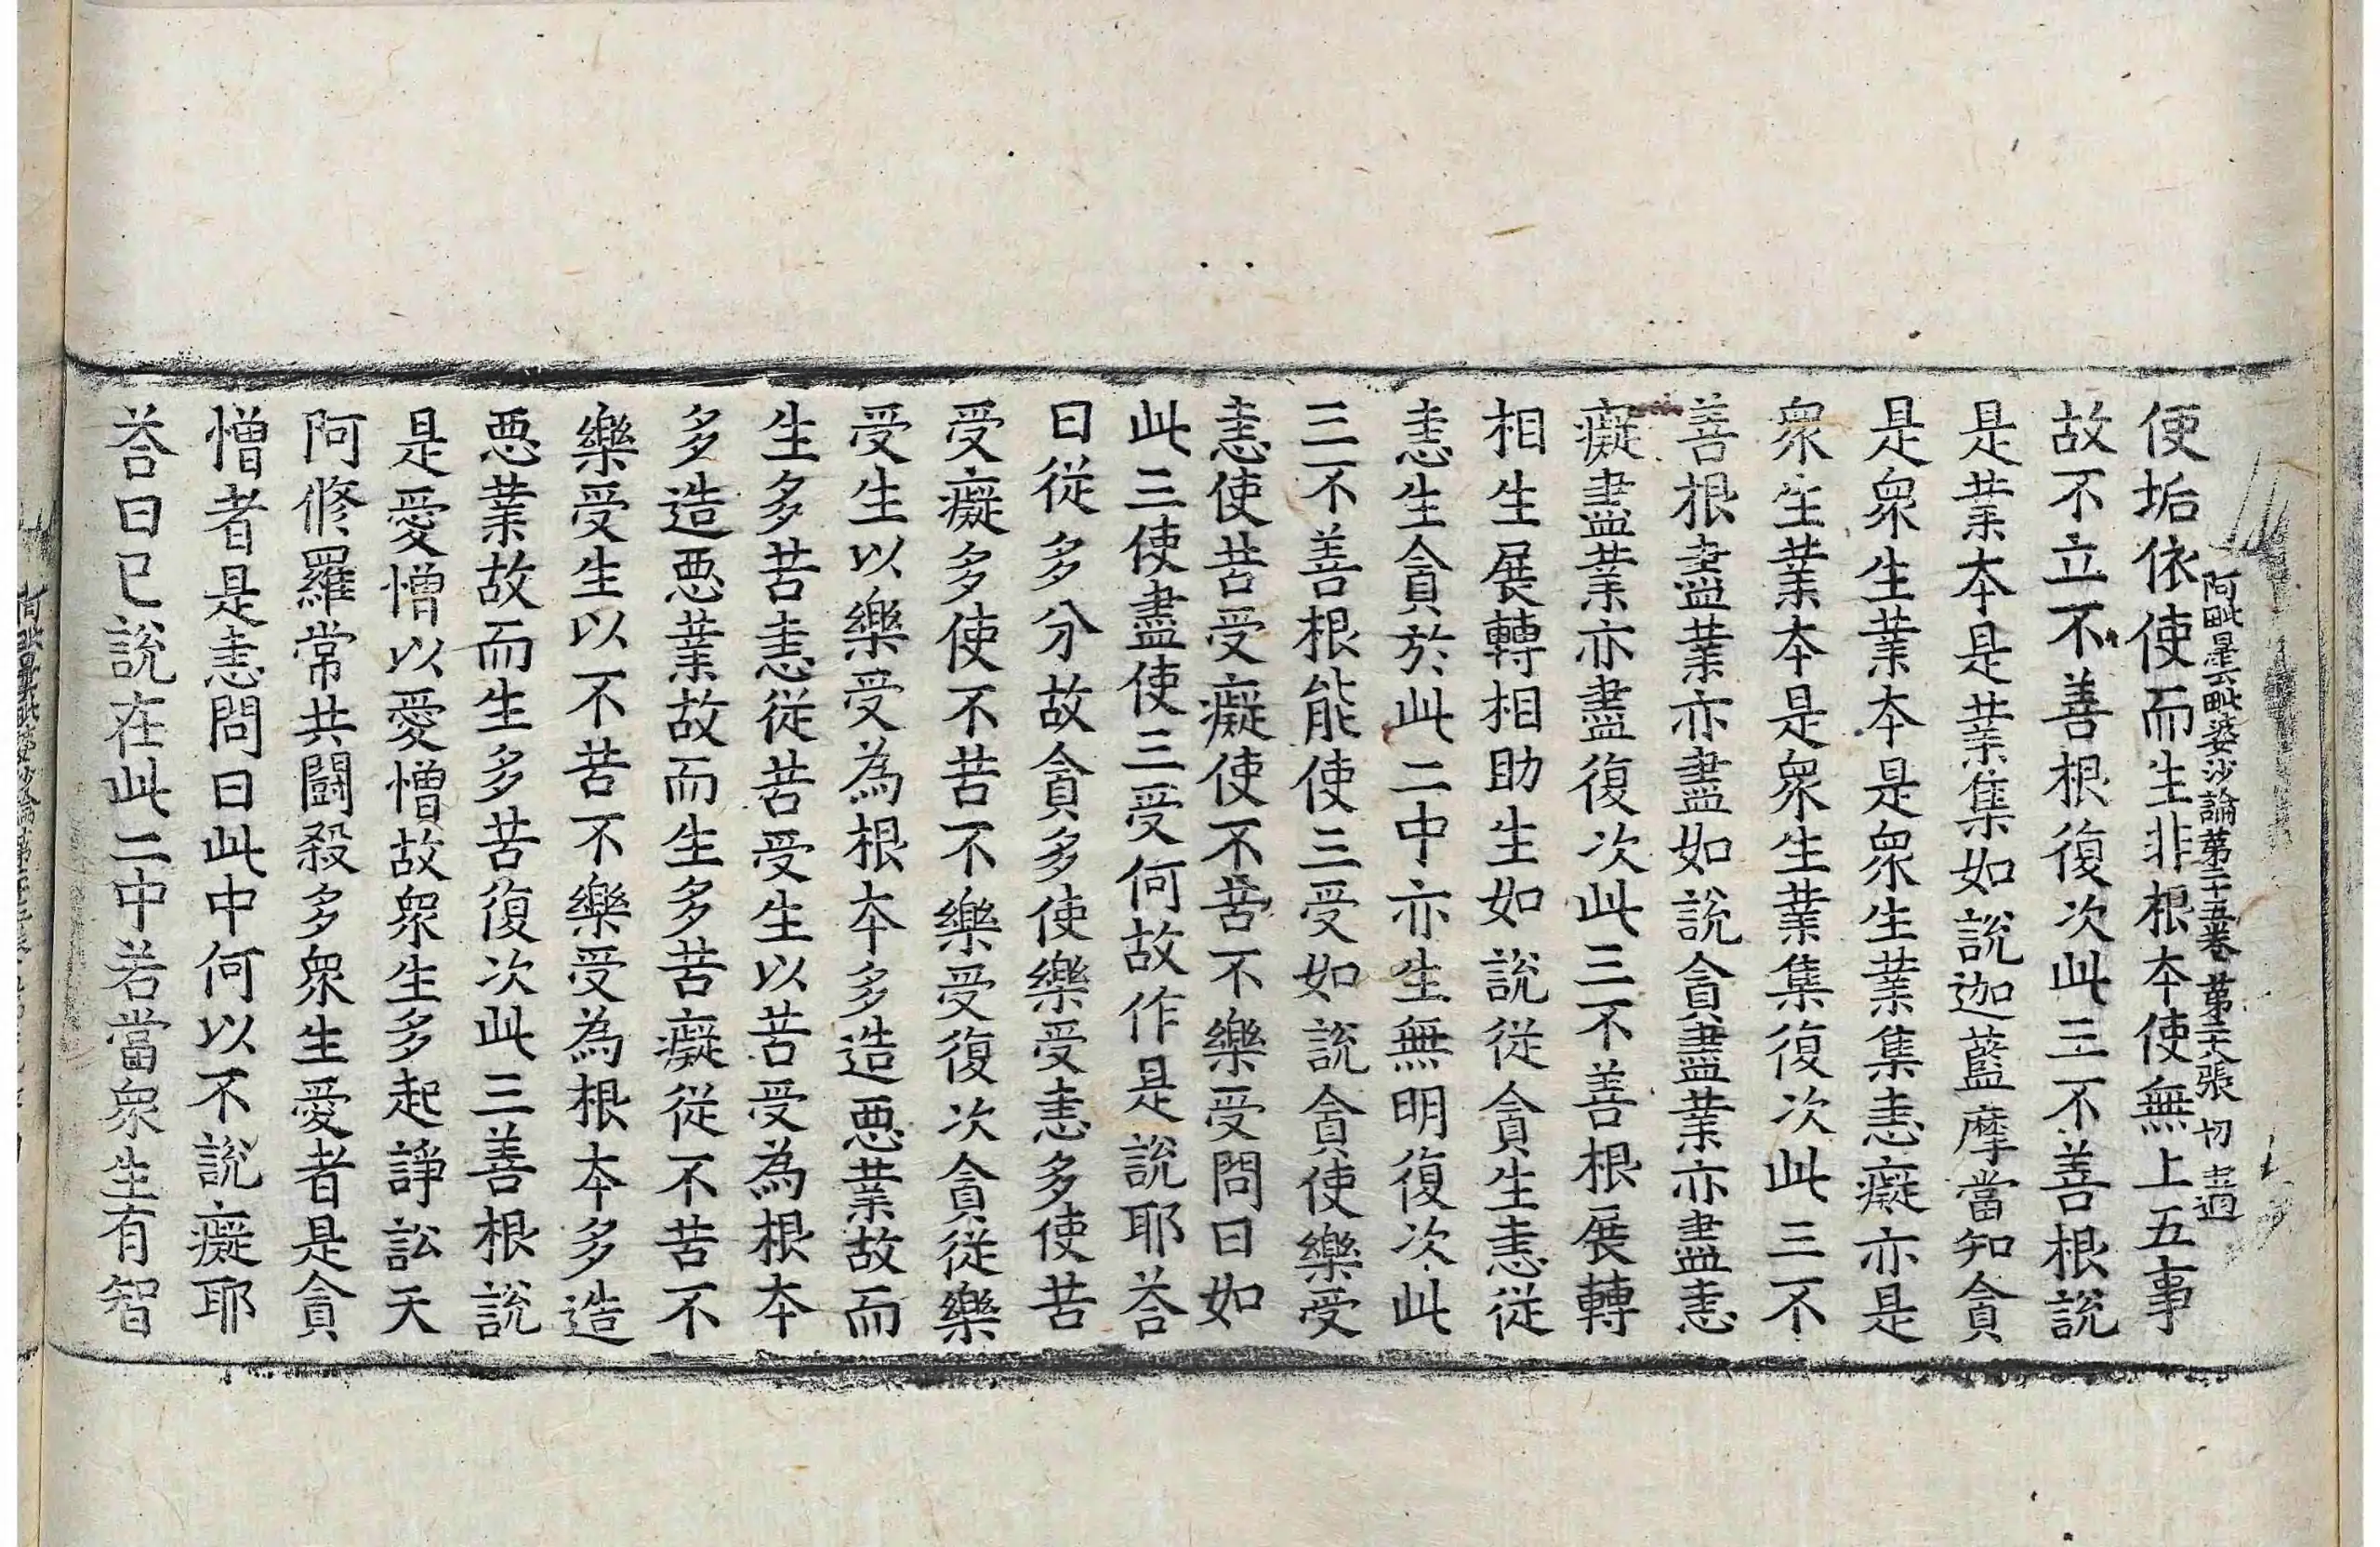 阿毗曇毗婆沙論第二十五卷 第二十八張 切
使垢依使而生非根本使無上五事
故不立不善根復次此三不善根說
是業本是業集如說迦藍摩當知貪
是衆生業本是衆生業集恚癡亦是
衆生業本是衆生業集復次此三不
善根盡業亦盡如說貪盡業亦盡恚
癡盡業亦盡復次此三不善根展轉
相生展轉相助生如說從貪生恚從
恚生貪於此二中亦生無明復次此
三不善根能使三受如說貪使樂受
恚使苦受癡使不苦不樂受問曰如
此三使盡使三受何故作是說耶荅
曰從多分故貪多使樂受恚多使苦
受癡多使不苦不樂受復次貪從樂
受生以樂受為根本多造惡業故而
生多苦恚從苦受生以苦受為根本
多造惡業故而生多苦癡從不苦不
樂受生以不苦不樂受為根本多造
惡業故而生多苦復次此三善根說
是愛憎以愛憎故衆生多起諍訟天
阿修羅常共鬪殺多衆生愛者是貪
憎者是恚問曰此中何以不說癡耶
荅曰已說在此二中若當衆生有智